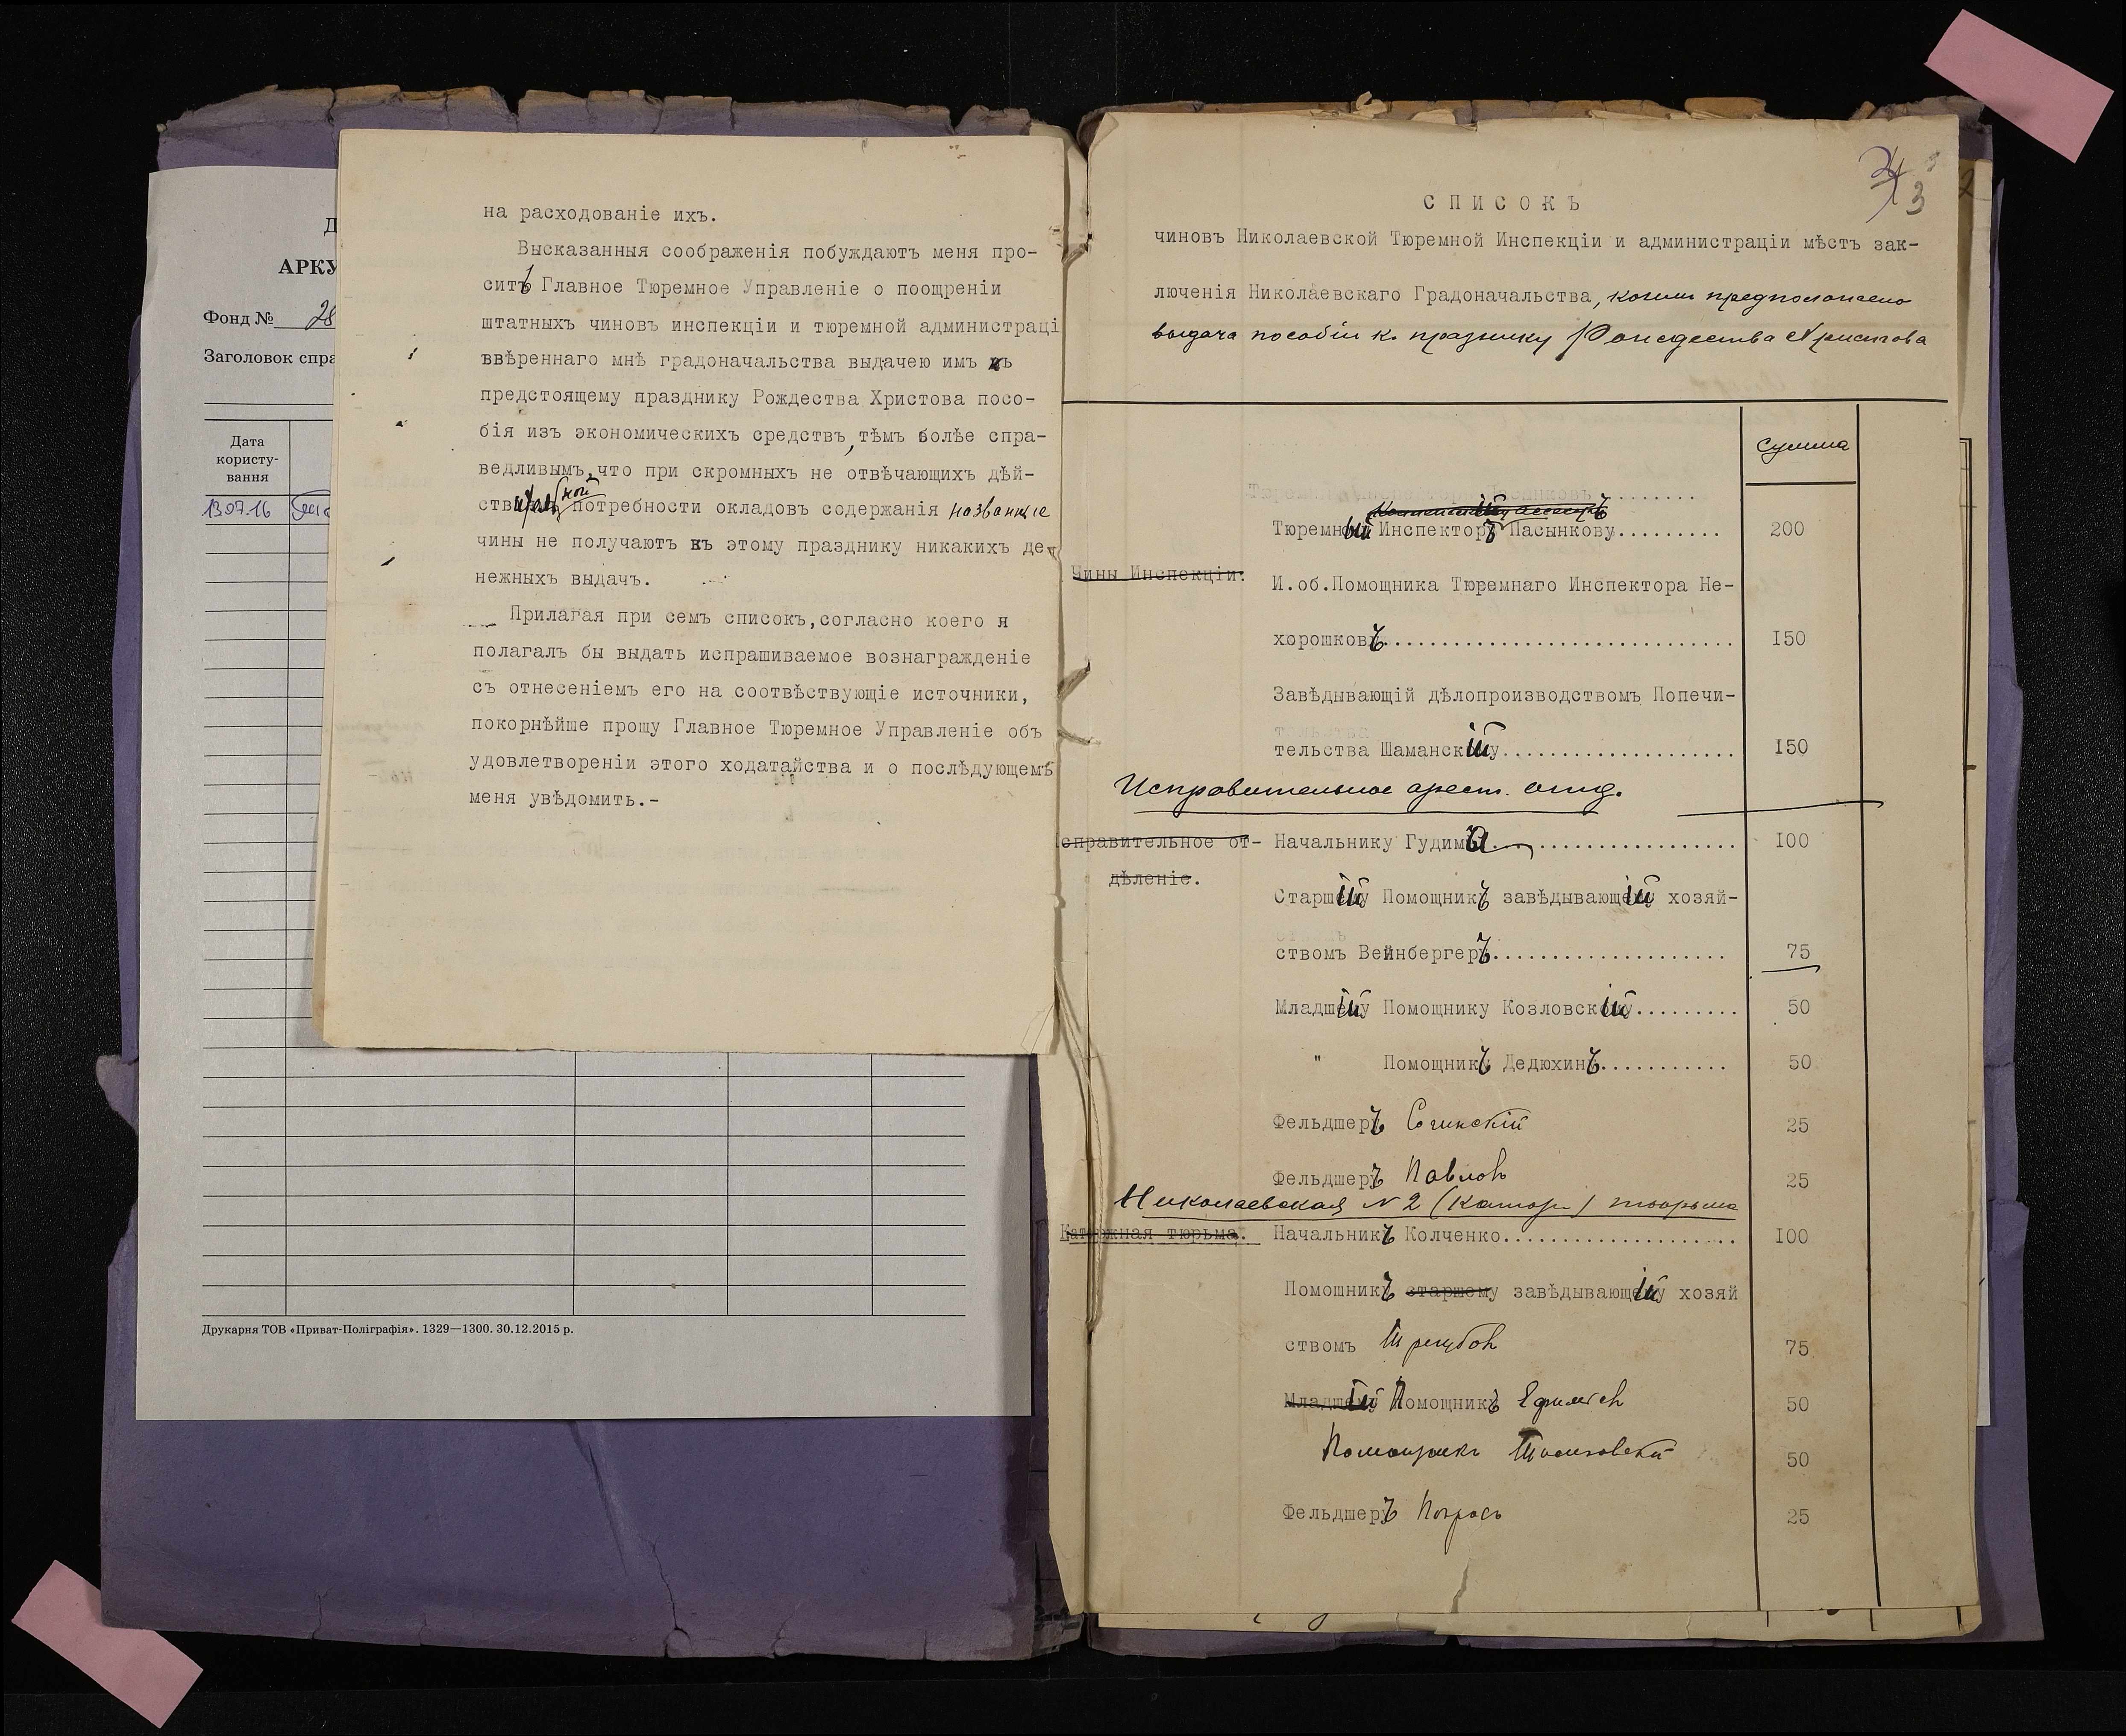 Д
АРКУ
Фонд № 28
Заголовок спра
Дата
користу-
вання
13.07.16
Друкарня ТОВ «Приват-Поліграфія». 1329—1300. 30.12.2015 р.
на расходованіе ихъ.
Высказанныя соображенія побуждаютъ меня про-
сить Главное Тюремное Управленіе о поощреніи
штатныхъ чиновъ инспекціи и тюремной администраці
ввѣреннаго мнѣ градоначальства выдачею имъ къ
предстоящему празднику Рождества Христова посо-
бія изъ экономическихъ средствъ, тѣмъ болѣе спра-
ведливымъ, что при скромныхъ не отвѣчающихъ дѣй-
ствительной потребности окладовъ содержанія названные
чины не получаютъ къ этому празднику никакихъ де-
нежныхъ выдачъ.
Прилагая при семъ списокъ, согласно коего я
полагалъ бы выдать испрашиваемое вознагражденіе
съ отнесеніемъ его на соотвѣствующіе источники,
покорнѣйше прошу Главное Тюремное Управленіе объ
удовлетвореніи этого ходатайства и о послѣдующемъ
меня увѣдомить.-
3
СПИСОКЪ
чиновъ Николаевской Тюремной Инспекціи и администраціи мѣстъ зак-
люченія Николаевскаго Градоначальства, коимъ предположено
выдача пособій къ празднику Рождества Христова
Сумма
Тюремный Инспекторъ Пасынкову......... 200
Чины Инспекціи:
И.об.Помощника Тюремнаго Инспектора Не-
хорошковъ.............................. 150
Завѣдывающій дѣлопроизводствомъ Попечи-
тельства Шаманскій.................... 150
Исправительное арест. отд.
справительное от-
дѣленіе.
Начальнику Гудима..................... 100
Старшій Помощникъ завѣдывающій хозяй-
ствомъ Вейнбергеръ.................... 75
Младшій Помощнику Козловскій......... 50
" Помощникъ Дедюхинъ........... 50
Фельдшеръ Согинскій 25
Фельдшеръ Павловъ 25
Николаевская №2 (Каторж) тюрьма
Каторжная тюрьма. Начальникъ Колченко.................... 100
Помошникъ старшему завѣдывающій хозяй
ствомъ 75
Младшій Помощникъ 50
Помощникъ 50
Фельдшеръ 25